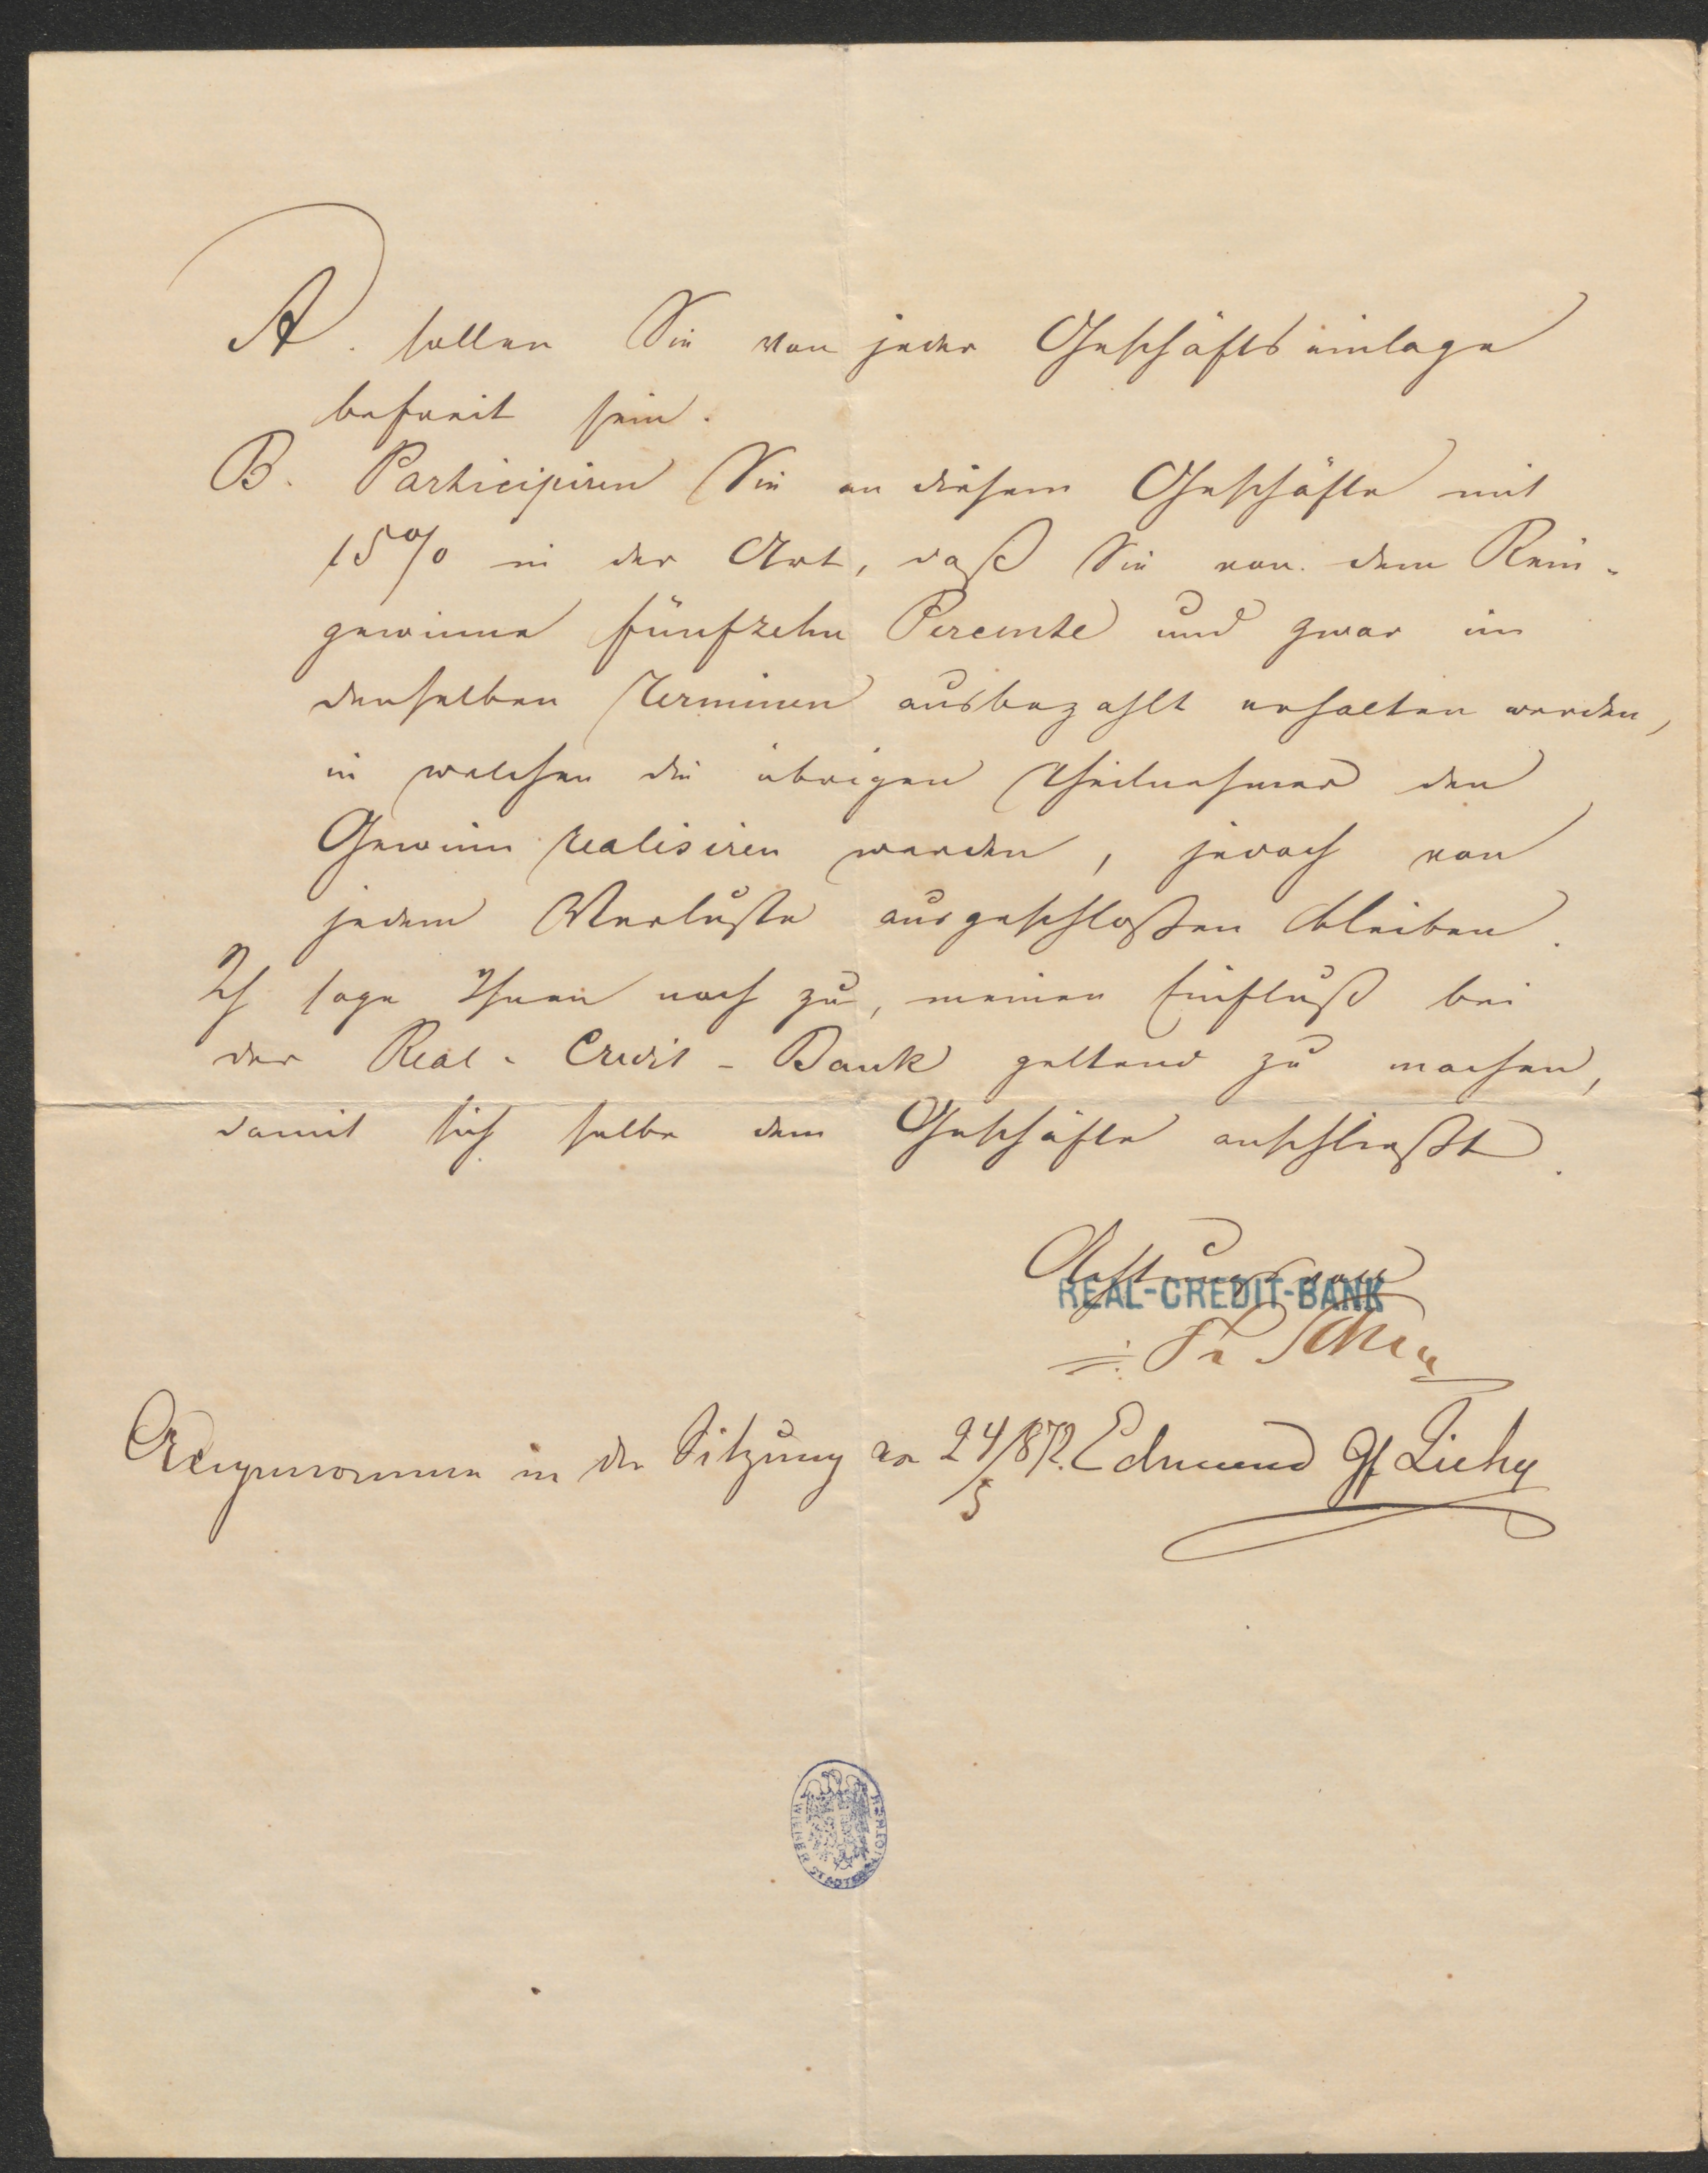 A. sollen Sie von jeder Geschäftseinlage
befreit sein.
B. Participiren Sie an diesem Geschäfte mit
15% in der Art, daß Sie von dem Rein-
gewinne fünfzehn Percente und zwar in
denselben Terminen ausbezahlt erhalten werden,
in welchen die übrigen Theilnehmer den
Gewinn realisiren werden, jedoch von
jedem Verluste ausgeschloßen bleiben.
Ich sage Ihnen noch zu, meinen Einfluß bei
der Real-Credit-Bank geltend zu machen,
damit sich selbe dem Geschäfte anschließt.
Achtungsvoll
REAL-CREDIT-BANK
Angenommen in der Sitzung vom 24/5 872. Edmund Gf Zichy
WIENER STADTBIBLIOTHEK